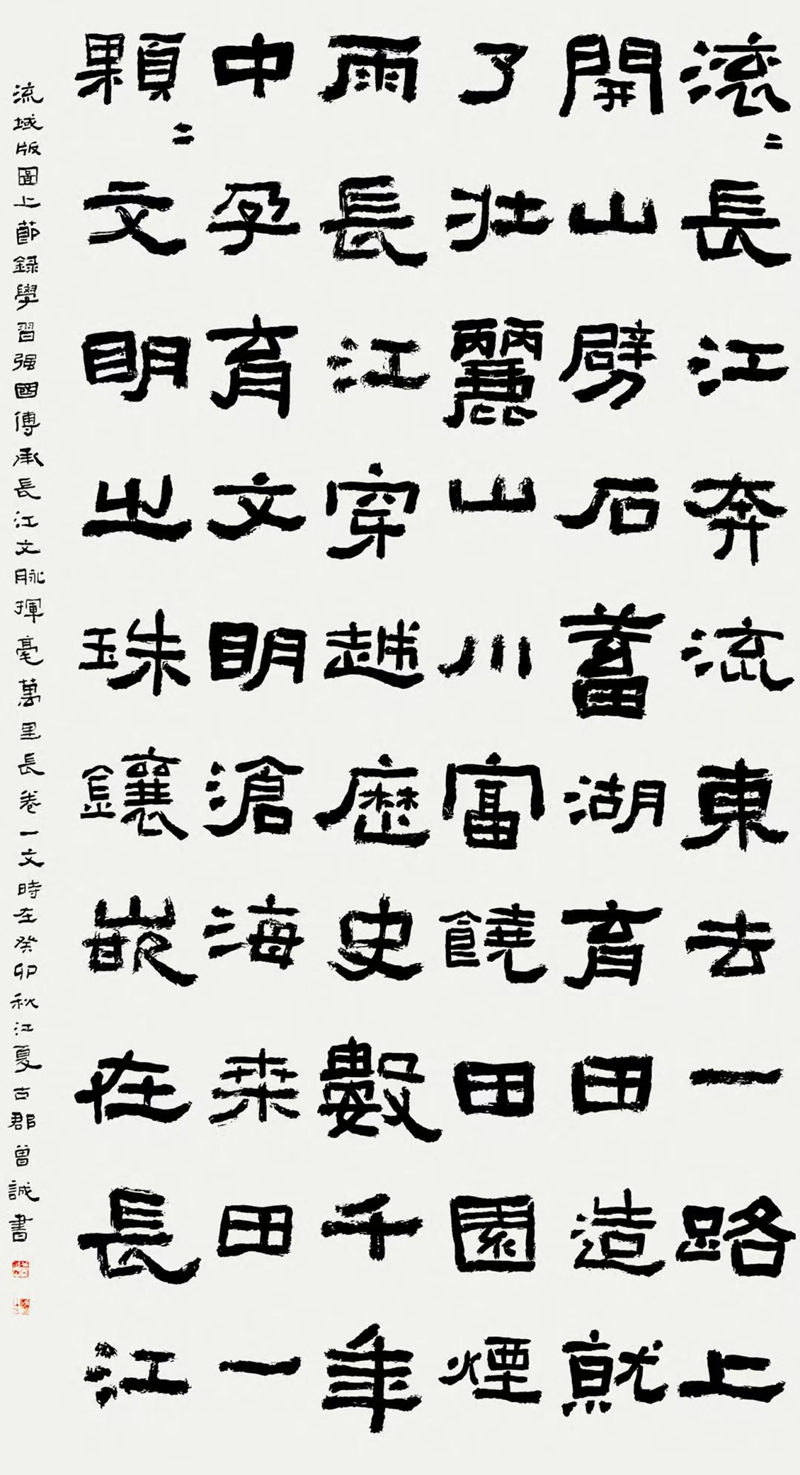 滚〻長江奔流東去一路上
開山劈石蓄湖育田造就
了壯麗山川富饒田園煙
雨長江穿越歷史數千年
中孕育文明滄海桒田一
顆〻文明之珠鑲嵌在長江
流域版圖上節錄學習強國傳承長江文脉揮毫萬里長卷一文時在癸卯秋江夏古郡曾誠書